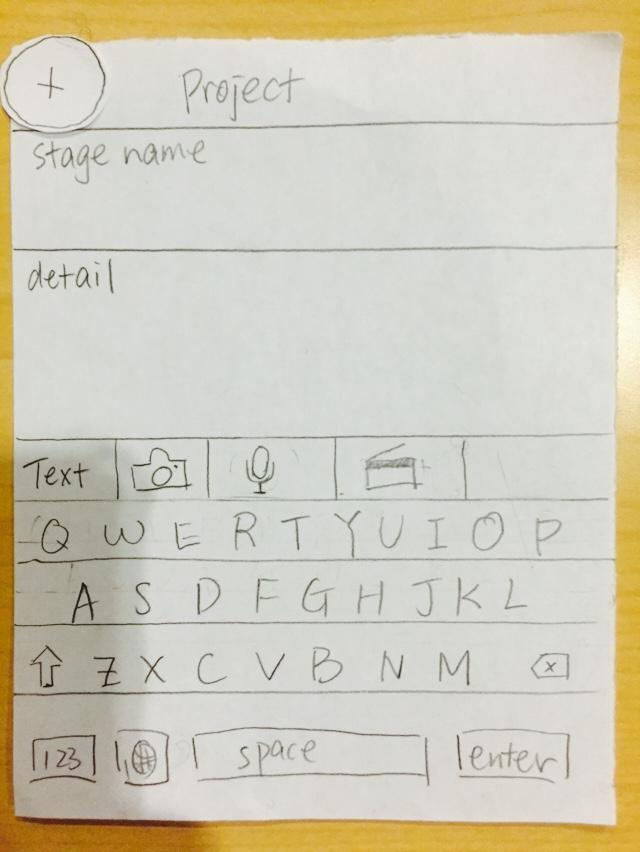 + Project
stage name
detail
Text
Q W E R T Y U I O P
A S D F G H J K L
Z X C V B N M x
123 space enter